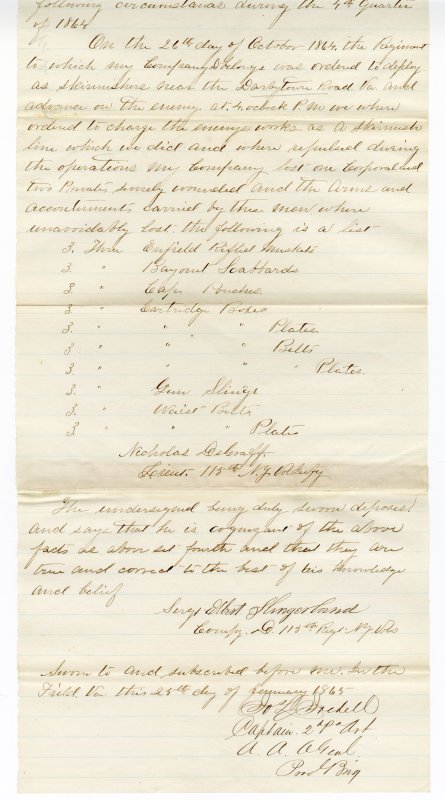 following circumstances during the 4th Quarter
of 1864
On the 26th day of October 1864, the Regiment
to which my Company D belongs was ordered to deploy
as skirmishers near the Darbytown Road Va and
advance on the enemy. at 4 oclock P.M we where
ordered to charge the enemys works as a skirmish
line which we did and where repulsed during
the operations my Company lost one Corporal and
two Privates severely wounded and the Arms and
accouterments carried by these men where
unavoidably lost. the following is a list
3. Three Enfield Rifled Muskets
3 " Bayonet Scabbards
3. " Cap Pouches
3. " Cartridge Boxes
3. " " " Plates.
3 " " " Belts
3 " " " " Plates.
3. " Gun Slings
3. " Waist Belts
3. " " " Plates
Nicholas DeGraff
Lieut. 115th N.Y. Vol Infty
The undersigned being duly sworn deposes
and says that he is cognizant of the above
facts as above set fourth and that they are
true and correct to the best of his knowledge
and belief
Sergt Elbert Slingerland
Compy. D. 115th Regt N.Y. Vols
Sworn to and subscribed before me. In the
Field. Va. this 25th day of January 1865
Captain. 2d Pa Art
A. A. A Genl.
Prov. Brig